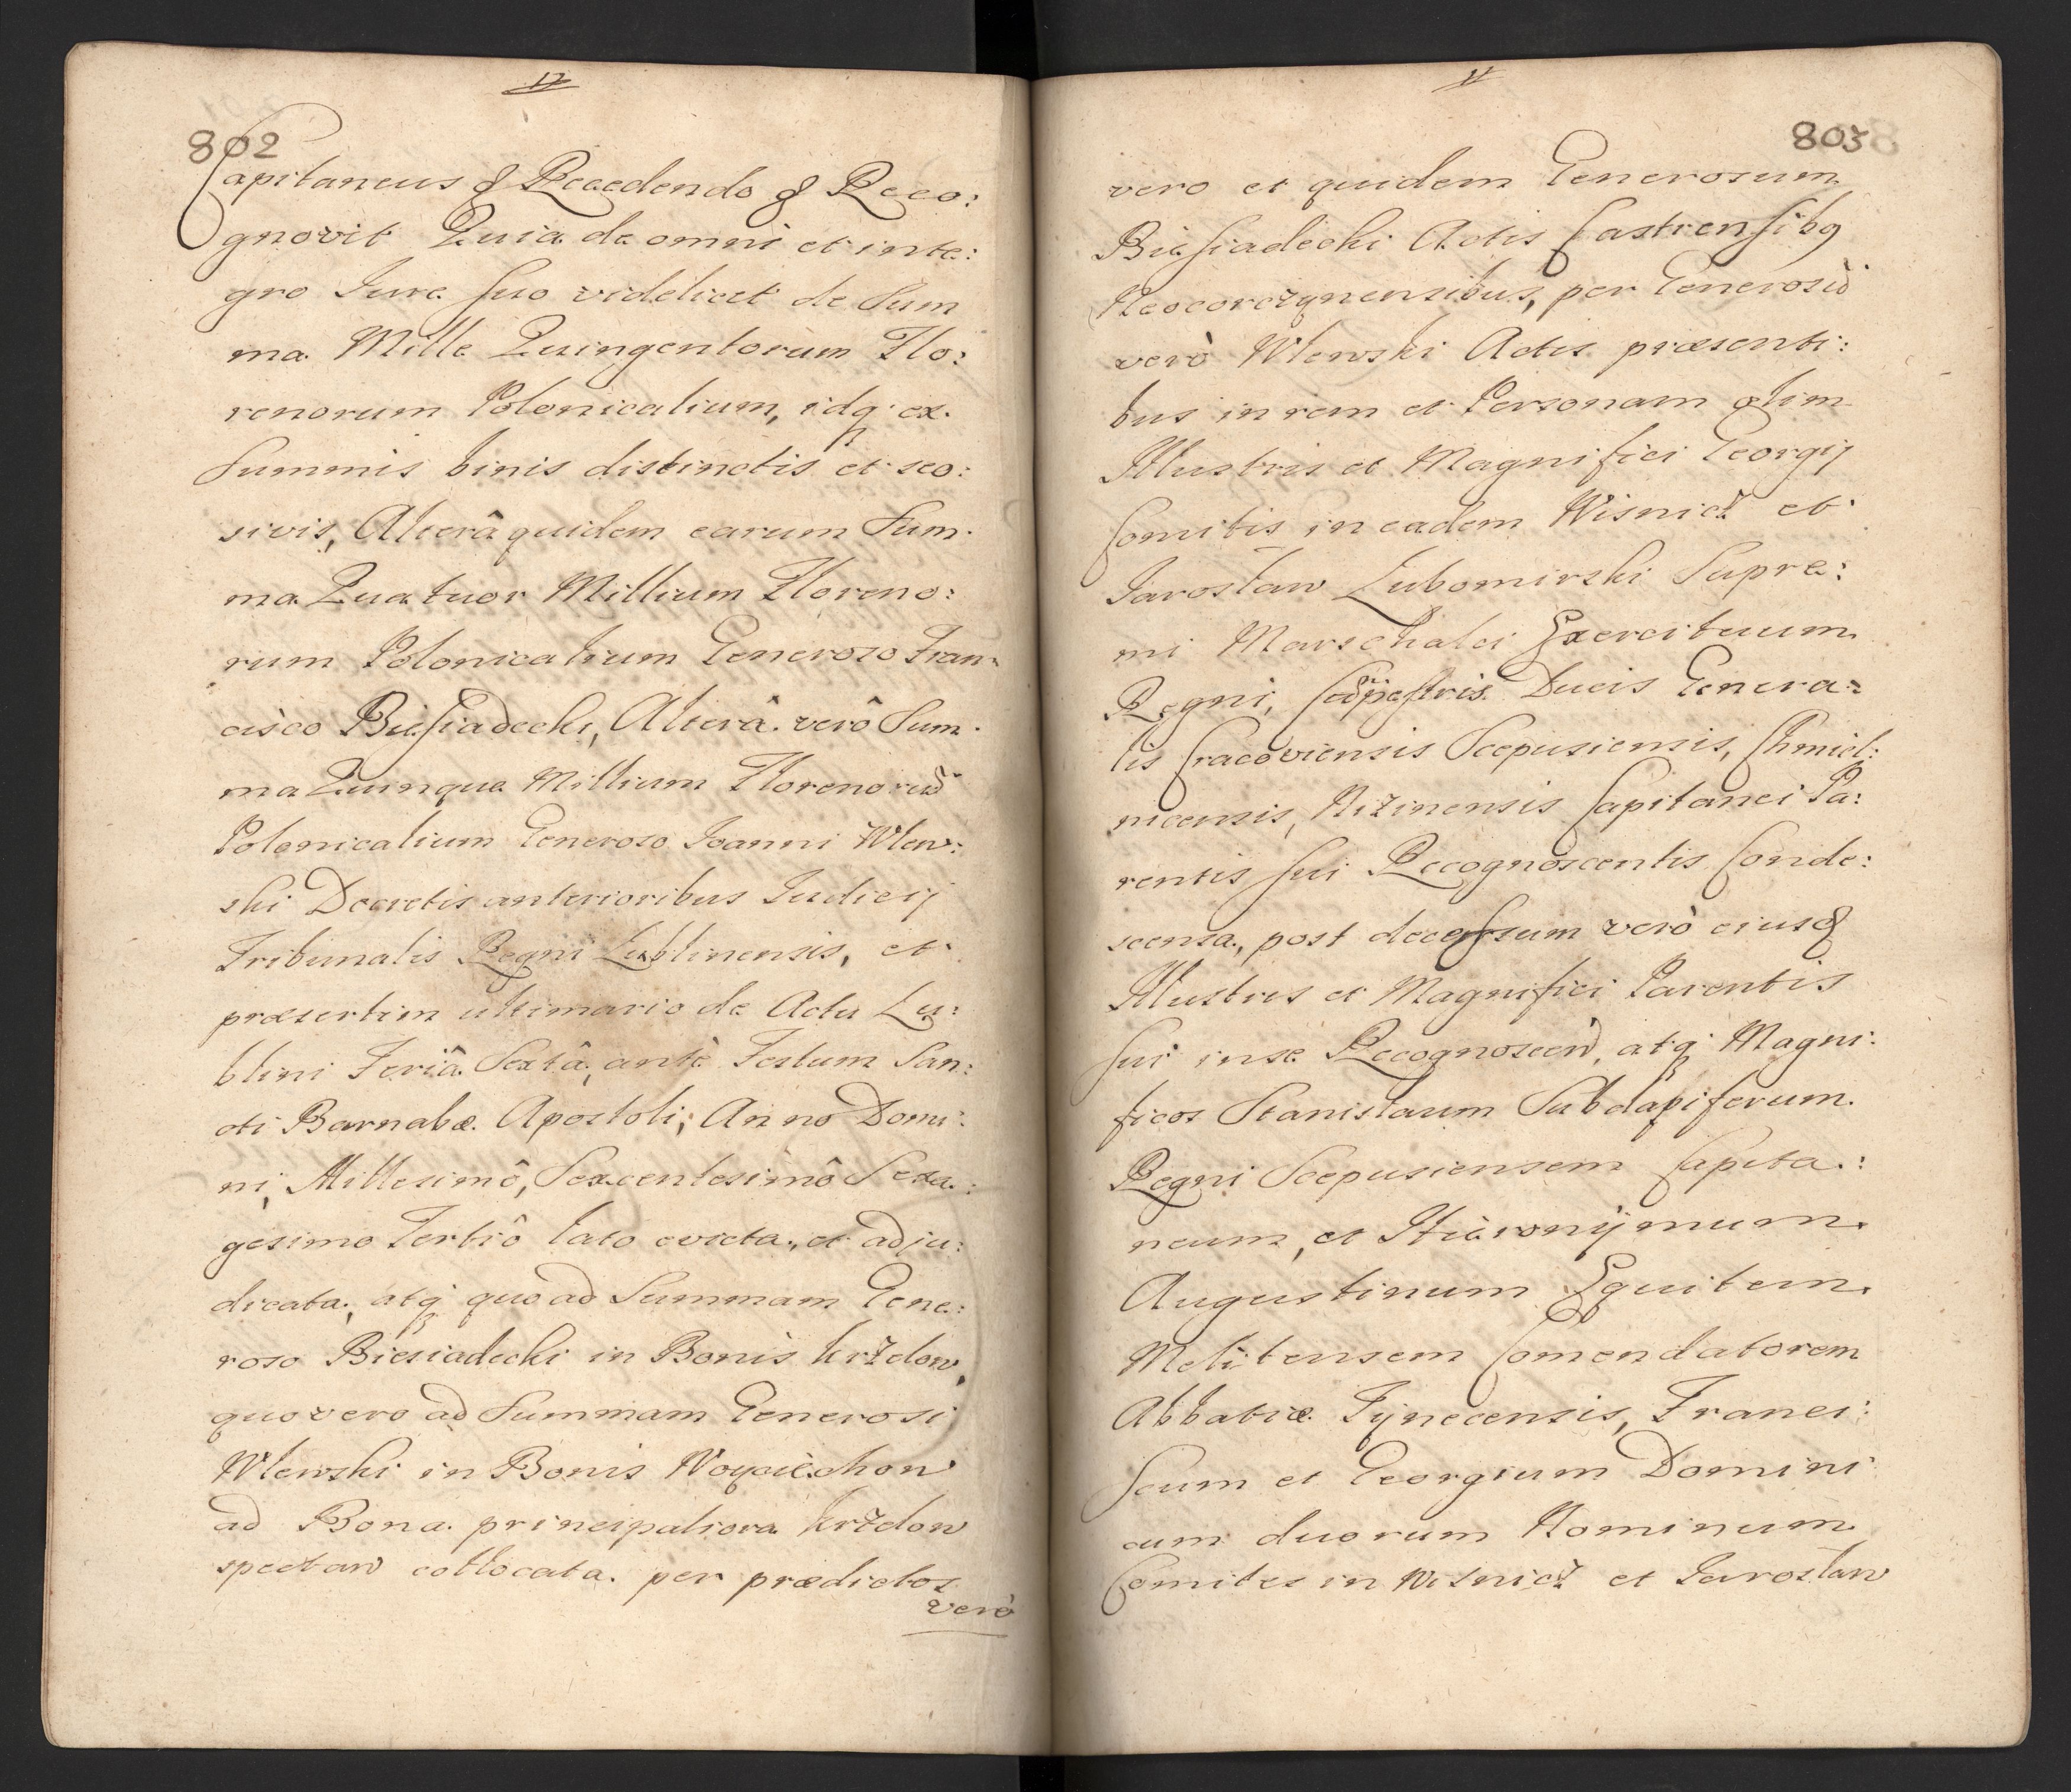 17
802
Capitaneus & Recedendo & Reco:
gnovit Quia de omni et inte:
gro Iure suo videlicet de Sum
ma Mille Quingentorum Flo:
renorum Polonicalium, idq ex
Summis binis distinctis et seo:
sivis, Alterâ quidem earum Sum.
ma Quatuor Millium Floreno:
rum Polonicalium Generoso Fran.
cisco Biesiadecki, Alterâ verô Sum.
ma Quinque Millium Florenorũ
Polonicalium Generoso Ioanni Wlew:
ski Decretis anterioribus Iudicij
Tribunalis Regni Lublinensis, et
præsertim ultimario de Actu Lu:
blini Feriâ Sextâ, antè Festum San:
cti Barnabæ Apostoli, Anno Domi:
ni, Millesimô, Sexcentesimô Sexa:
gesimo Tertiô lato evicta, et adju:
dicata, atq quoad Summam Gene:
roso Biesiadecki in Bonis krzelow,
quo vero ad Summam Generosi
Wlewski in Bonis Woyciechow
ad Bona principaliora krzelow
spectan collocata per prædictos
verò
803
vero et quidem Generosum
Biesiadecki Actis Castrensibg
Neocorczynensibus, per Generosũ
verò Wlewski Actis præsenti:
bus in rem et Personam olim
Illustris et Magnifici Georgij
Comitis in eadem Wisnicz et
Iarosław Lubomirski Supre:
mi Marschalci Exercituum
Regni, Ducis Genera:
lis Cracoviensis Scepusiensis, Chmiel:
nicensis, Nizinensis Capitanei Pa:
rentis sui Recognoscentis Conde:
scensa, post decessum verò eius&
Illustris et Magnifici Parentis
sui in se Recognoscen, atq Magni:
ficos Stanislaum Subdapiferum
Regni Scepusiensem Capita:
neum, et Hieronÿmum
Augustinum Equitem
Melitensem Comendatorem
Abbatiæ Tÿnecensis, Franci:
scum et Georgium Domini
cum duorum Nominum
Comites in Wisnicz et Jarosław